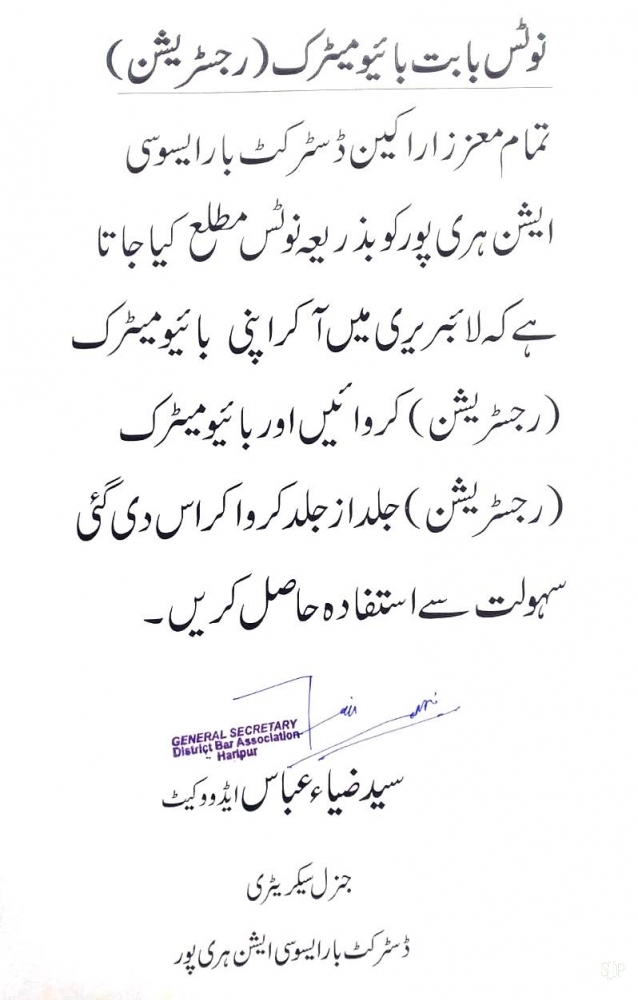 نوٹس بابت بائیومیٹرک (رجسٹریشن)
تمام معزز اراکین ڈسٹرکٹ بار ایسوسی
ایشن ہری پور کو بذریعہ نوٹس مطلع کیا جاتا
ہے کہ لائبریری میں آ کر اپنی بائیومیٹرک
(رجسٹریشن) کروائیں اور بائیومیٹرک
(رجسٹریشن) جلد از جلد کروا کر اس دی گئی
سہولت سے استفادہ حاصل کریں۔
GENERAL SECRETARY
District Bar Association
Haripur
سید ضیاء عباس ایڈووکیٹ
جنرل سیکریٹری
ڈسٹرکٹ بار ایسوسی ایشن ہری پور